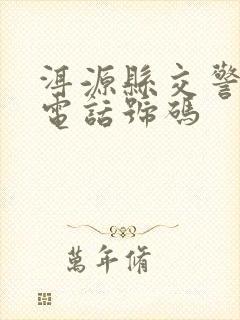 洱源縣交警
電話號碼
萬年脩